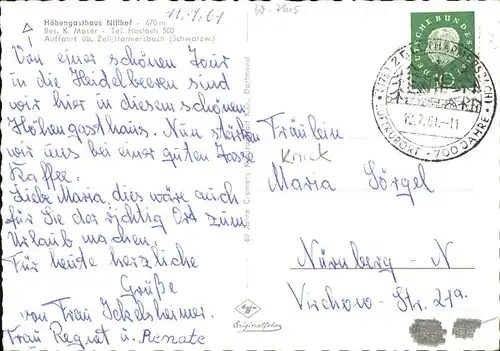 11.7.61
W-7615
Höhengasthaus Nillhof - 670 m
Bes. K. Moser - Tel. Haslach 500
Auffahrt üb. Zell/Harmersbach (Schwarzw.)
Von einer schönen Tour
in die Heidelbeeren sind
wir hier in diesem schönen
Höhengasthaus. Nun stärken
wir uns bei einer guten Tasse
Kaffee.
Liebe Maria, dies wäre auch
für Sie der richtig Ort zum
Urlaub machen.
Für heute herzliche
Grüße
von Frau Ickelsheimer.
Frau Regnat u. Renate
60 Jahre Cramers Dortmund
Originalfotos
DEUTSCHE BUNDESPOST
10
HARMERSBACH
12.7.61.-11
LUFTKURORT · 700 JAHRE
Fräulein
Knick
Maria Sörgel
Nürnberg - N
Virchow-Str. 21a.